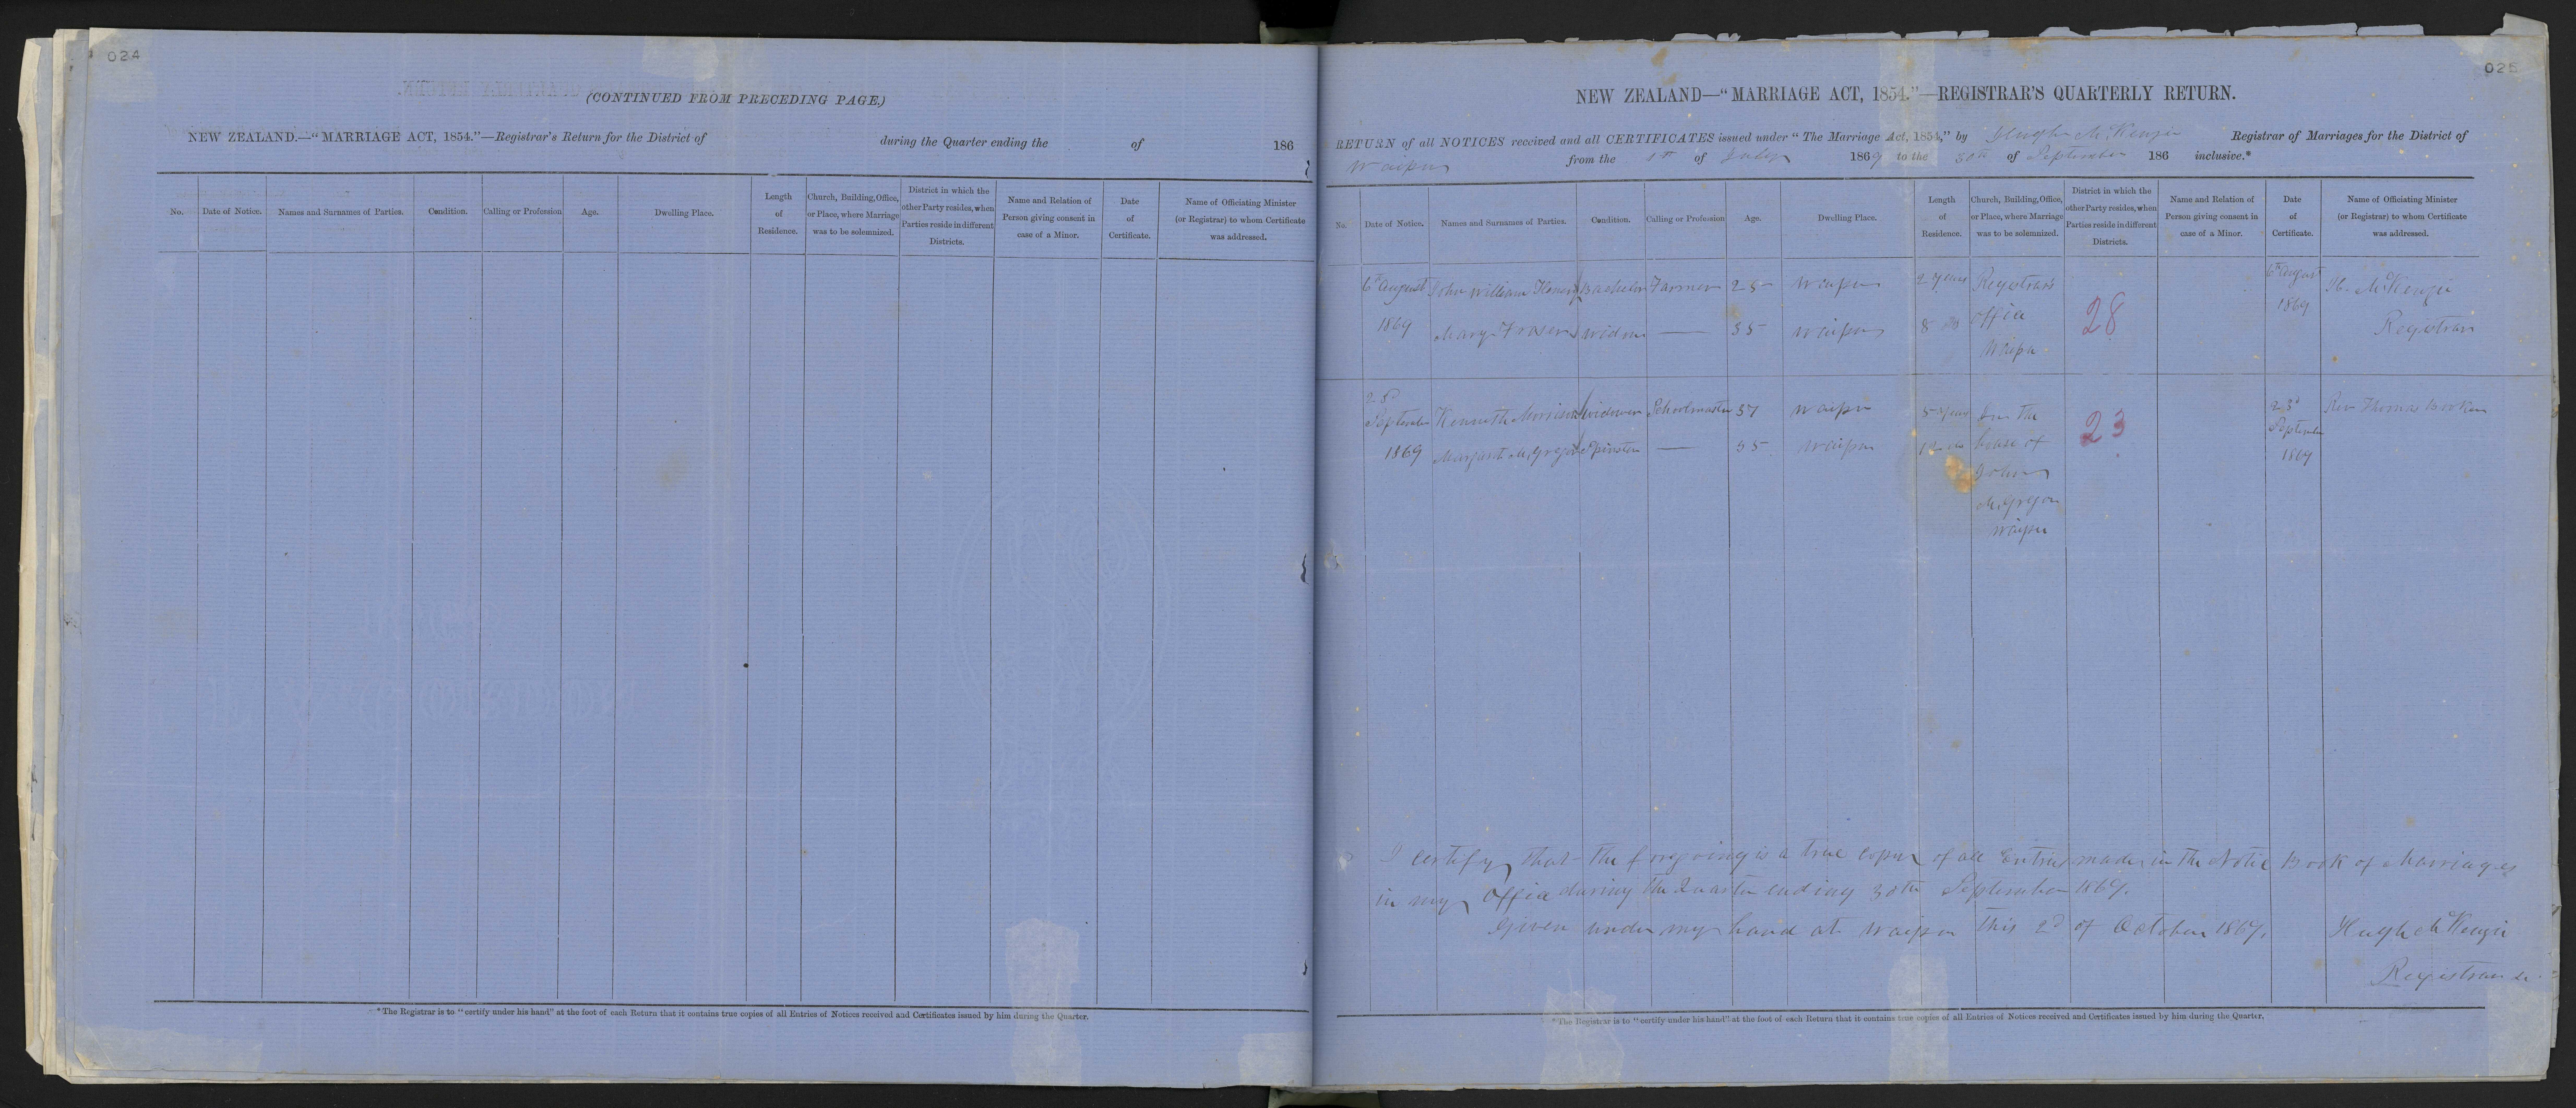 024
(CONTINUED FROM PRECEDING PAGE.)
NEW ZEALAND.—"MARRIAGE ACT, 1854."—Registrar's Return for the District of during the Quarter ending the of 186
No.
Date of Notice.
Names and Surnames of Parties.
Condition.
Calling or Profession
Age.
Dwelling Place.
Length
of
Residence.
Church, Building, Office,
or Place, where Marriage
was to be solemnized.
District in which the
other Party resides, when
Parties reside in different
Districts.
Name and Relation of
Person giving consent in
case of a Minor.
Date
of
Certificate.
Name of Officiating Minister
(or Registrar) to whom Certificate
was addressed.
*The Registrar is to "certify under his hand" at the foot of each Return that it contains true copies of all Entries of Notices received and Certificates issued by him during the Quarter.
025
NEW ZEALAND—"MARRIAGE ACT, 1854."—REGISTRAR'S QUARTERLY RETURN.
RETURN of all NOTICES received and all CERTIFICATES issued under "The Marriage Act, 1854," by Hugh McKenzie Registrar of Marriages for the District of
Waipu from the of July 1869 to the 30th of September 186 inclusive.*
No.
Date of Notice.
Names and Surnames of Parties.
Condition.
Calling or Profession
Age.
Dwelling Place.
Length
of
Residence.
Church, Building, Office,
or Place, where Marriage
was to be solemnized.
District in which the
other Party resides, when
Parties reside in different
Districts.
Name and Relation of
Person giving consent in
case of a Minor.
Date
of
Certificate.
Name of Officiating Minister
(or Registrar) to whom Certificate
was addressed.
6th August John William Bachelor Farmer 25 Waipu 2 years Registrars 6th August H. McKenzie
1869 Mary Fraser Widow — 35 Waipu 8 office 28 1869 Registrar
Waipu
September Kenneth Morrison widower Schoolmaster 37 Waipu 5 years in the 23 23d Rev Thomas
1869 Margaret McGregor Spinster — 35 Waipu 12 do house of September
John 1869
McGregor
Waipu
I certify that the foregoing is a true copy of all Entries made in the Notice Book of Marriages
in my Office during the Quarter ending 30th September 1869.
Given under my hand at Waipu this 2d of October 1869. Hugh McKenzie
Registrar
*The Registrar is to "certify under his hand" at the foot of each Return that it contains true copies of all Entries of Notices received and Certificates issued by him during the Quarter.